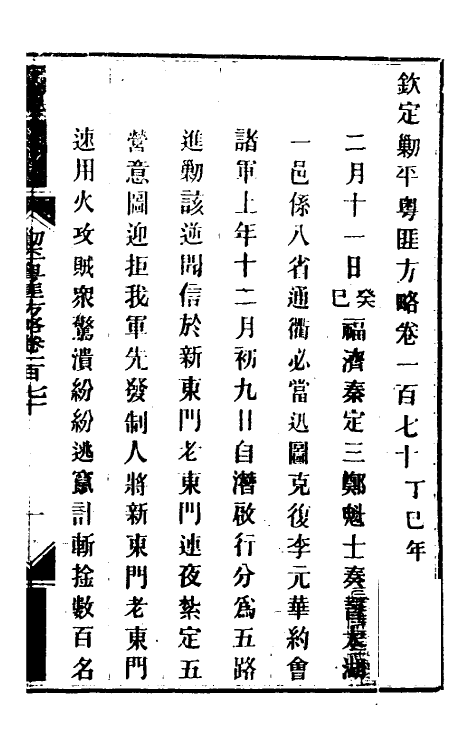 欽定勦平粵匪方略卷一百七十丁巳年
二月十一日癸巳福濟秦定三鄭魁士奏言太湖
一邑係八省通衢必當迅圖克復李元華約會
諸軍上年十二月初九日自潛啟行分為五路
進勦該逆聞信於新東門老東門連夜紮定五
營意圖迎拒我軍先發制人將新東門老東門
速用火攻賊眾驚潰紛紛逃竄計斬捦數百名
方略卷一百七十
一